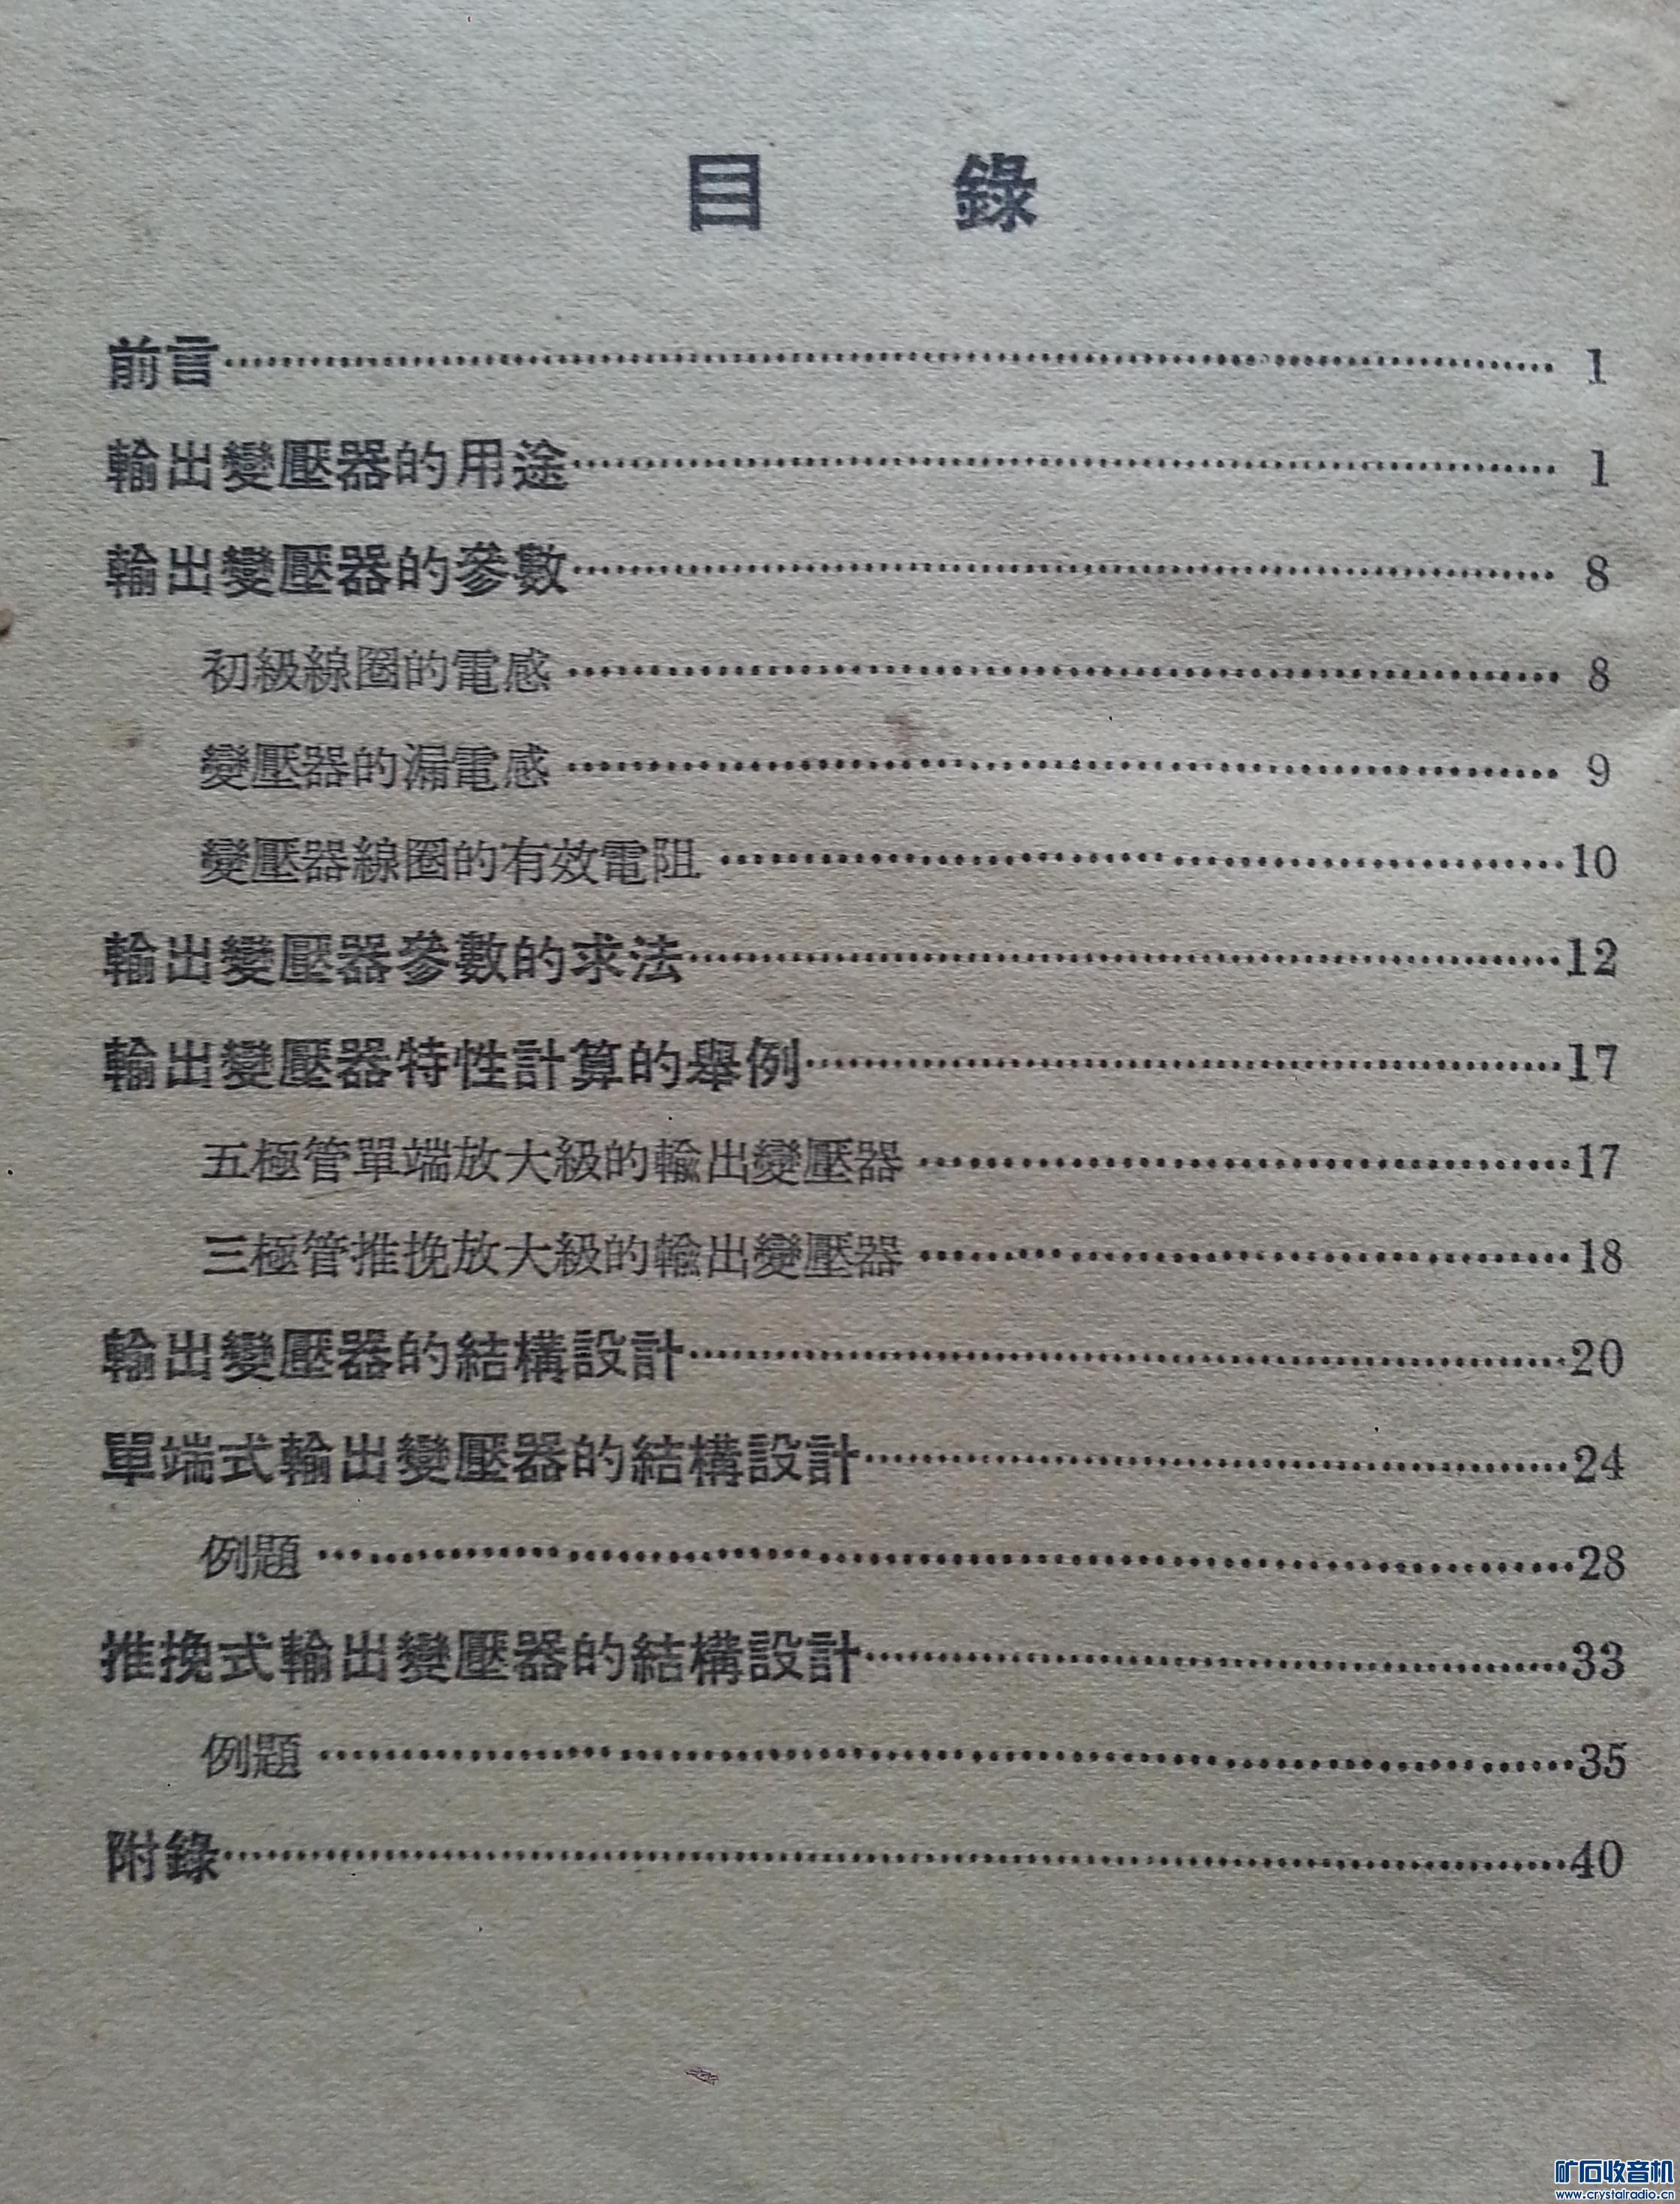 目 錄
前言 1
輸出變壓器的用途 1
輸出變壓器的參數 8
初級線圈的電感 8
變壓器的漏電感 9
變壓器線圈的有效電阻 10
輸出變壓器參數的求法 12
輸出變壓器特性計算的舉例 17
五極管單端放大級的輸出變壓器 17
三極管推挽放大級的輸出變壓器 18
輸出變壓器的結構設計 20
單端式輸出變壓器的結構設計 24
例題 28
推挽式輸出變壓器的結構設計 33
例題 35
附錄 40
矿石收音机
www.crystalradio.cn